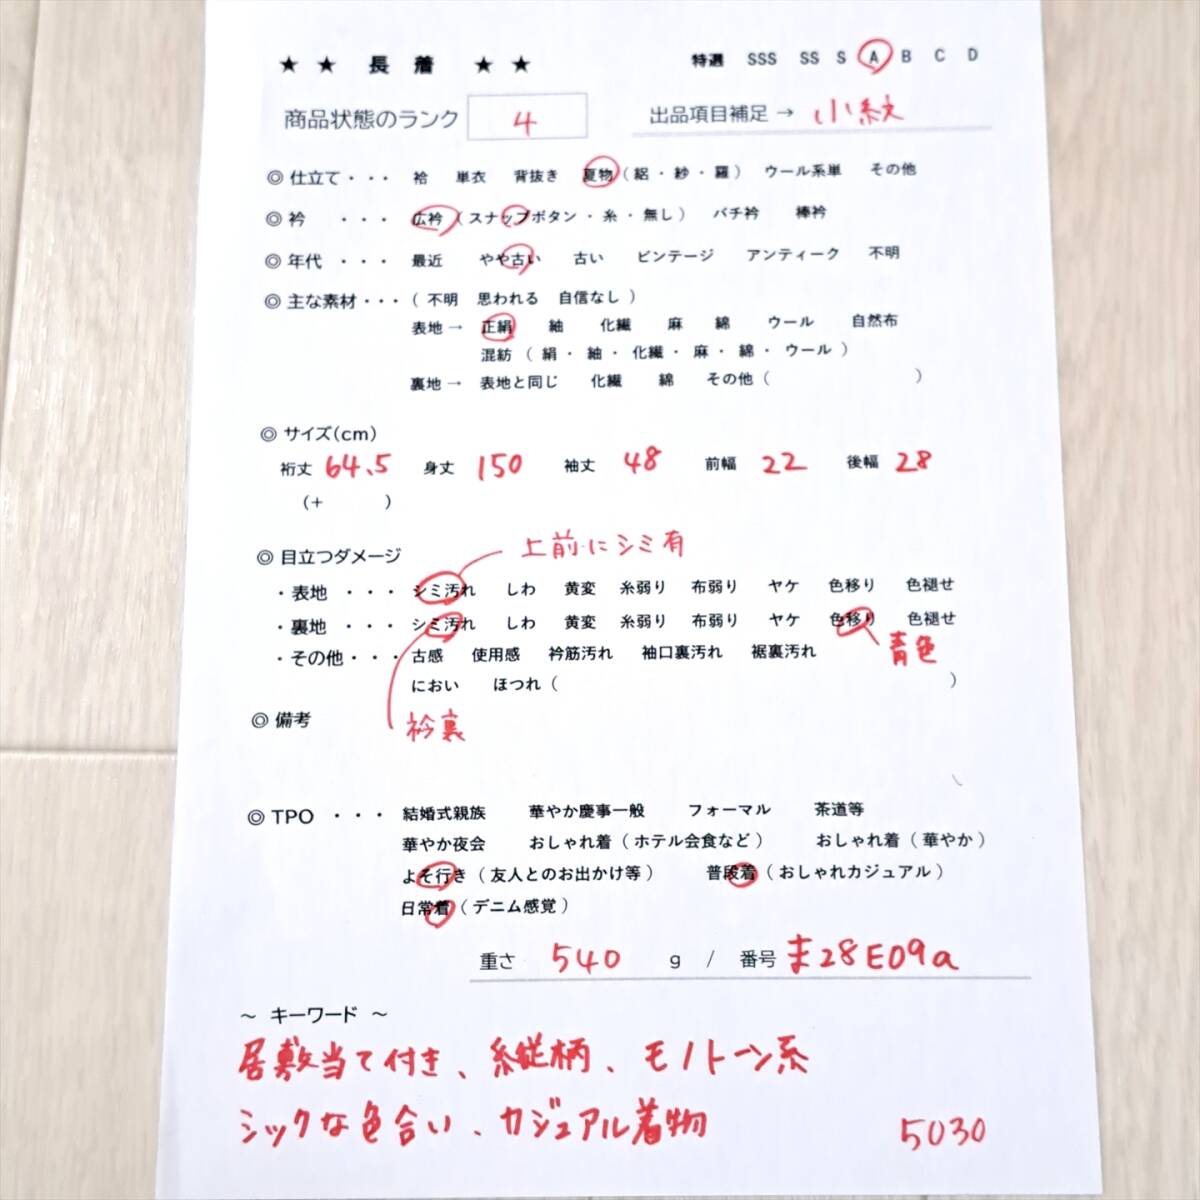 ★ ★ 長 着 ★ ★ 特選 SSS SS S A B C D
商品状態のランク 4 出品項目補足 → 小紋
◎ 仕立て・・・ 袷 単衣 背抜き 夏物 ( 絽 ・ 紗 ・ 羅 ) ウール系単 その他
◎ 衿 ・・・ 広衿 ( スナップボタン ・ 糸 ・ 無し ) バチ衿 棒衿
◎ 年代 ・・・ 最近 やや古い 古い ビンテージ アンティーク 不明
◎ 主な素材・・・ ( 不明 思われる 自信なし )
表地 → 正絹 紬 化繊 麻 綿 ウール 自然布
混紡 ( 絹 ・ 紬 ・ 化繊 ・ 麻 ・ 綿 ・ ウール )
裏地 → 表地と同じ 化繊 綿 その他 ( )
◎ サイズ(cm)
裄丈 64.5 身丈 150 袖丈 48 前幅 22 後幅 28
(+ )
上前にシミ有
◎ 目立つダメージ
・表地 ・・・ シミ汚れ しわ 黄変 糸弱り 布弱り ヤケ 色移り 色褪せ
・裏地 ・・・ シミ汚れ しわ 黄変 糸弱り 布弱り ヤケ 色移り 色褪せ
青色
・その他・・・ 古感 使用感 衿筋汚れ 袖口裏汚れ 裾裏汚れ
におい ほつれ ( )
◎ 備考 衿裏
◎ TPO ・・・ 結婚式親族 華やか慶事一般 フォーマル 茶道等
華やか夜会 おしゃれ着 ( ホテル会食など ) おしゃれ着 ( 華やか )
よそ行き ( 友人とのお出かけ等 ) 普段着 ( おしゃれカジュアル )
日常着 ( デニム感覚 )
重さ 540 g / 番号 ま28E09a
～ キーワード ～
居敷当て付き、縦柄、モノトーン系
シックな色合い、カジュアル着物
5030